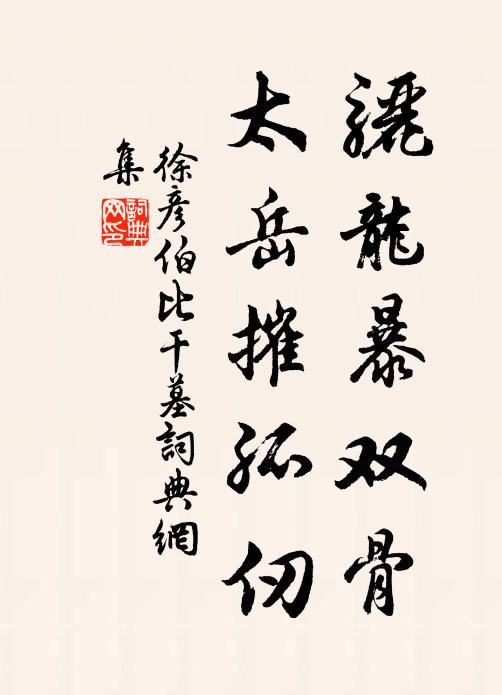 骊龍暴双骨
太岳摧孤仞
徐彦伯比干墓詞典網
集
詞典
网印